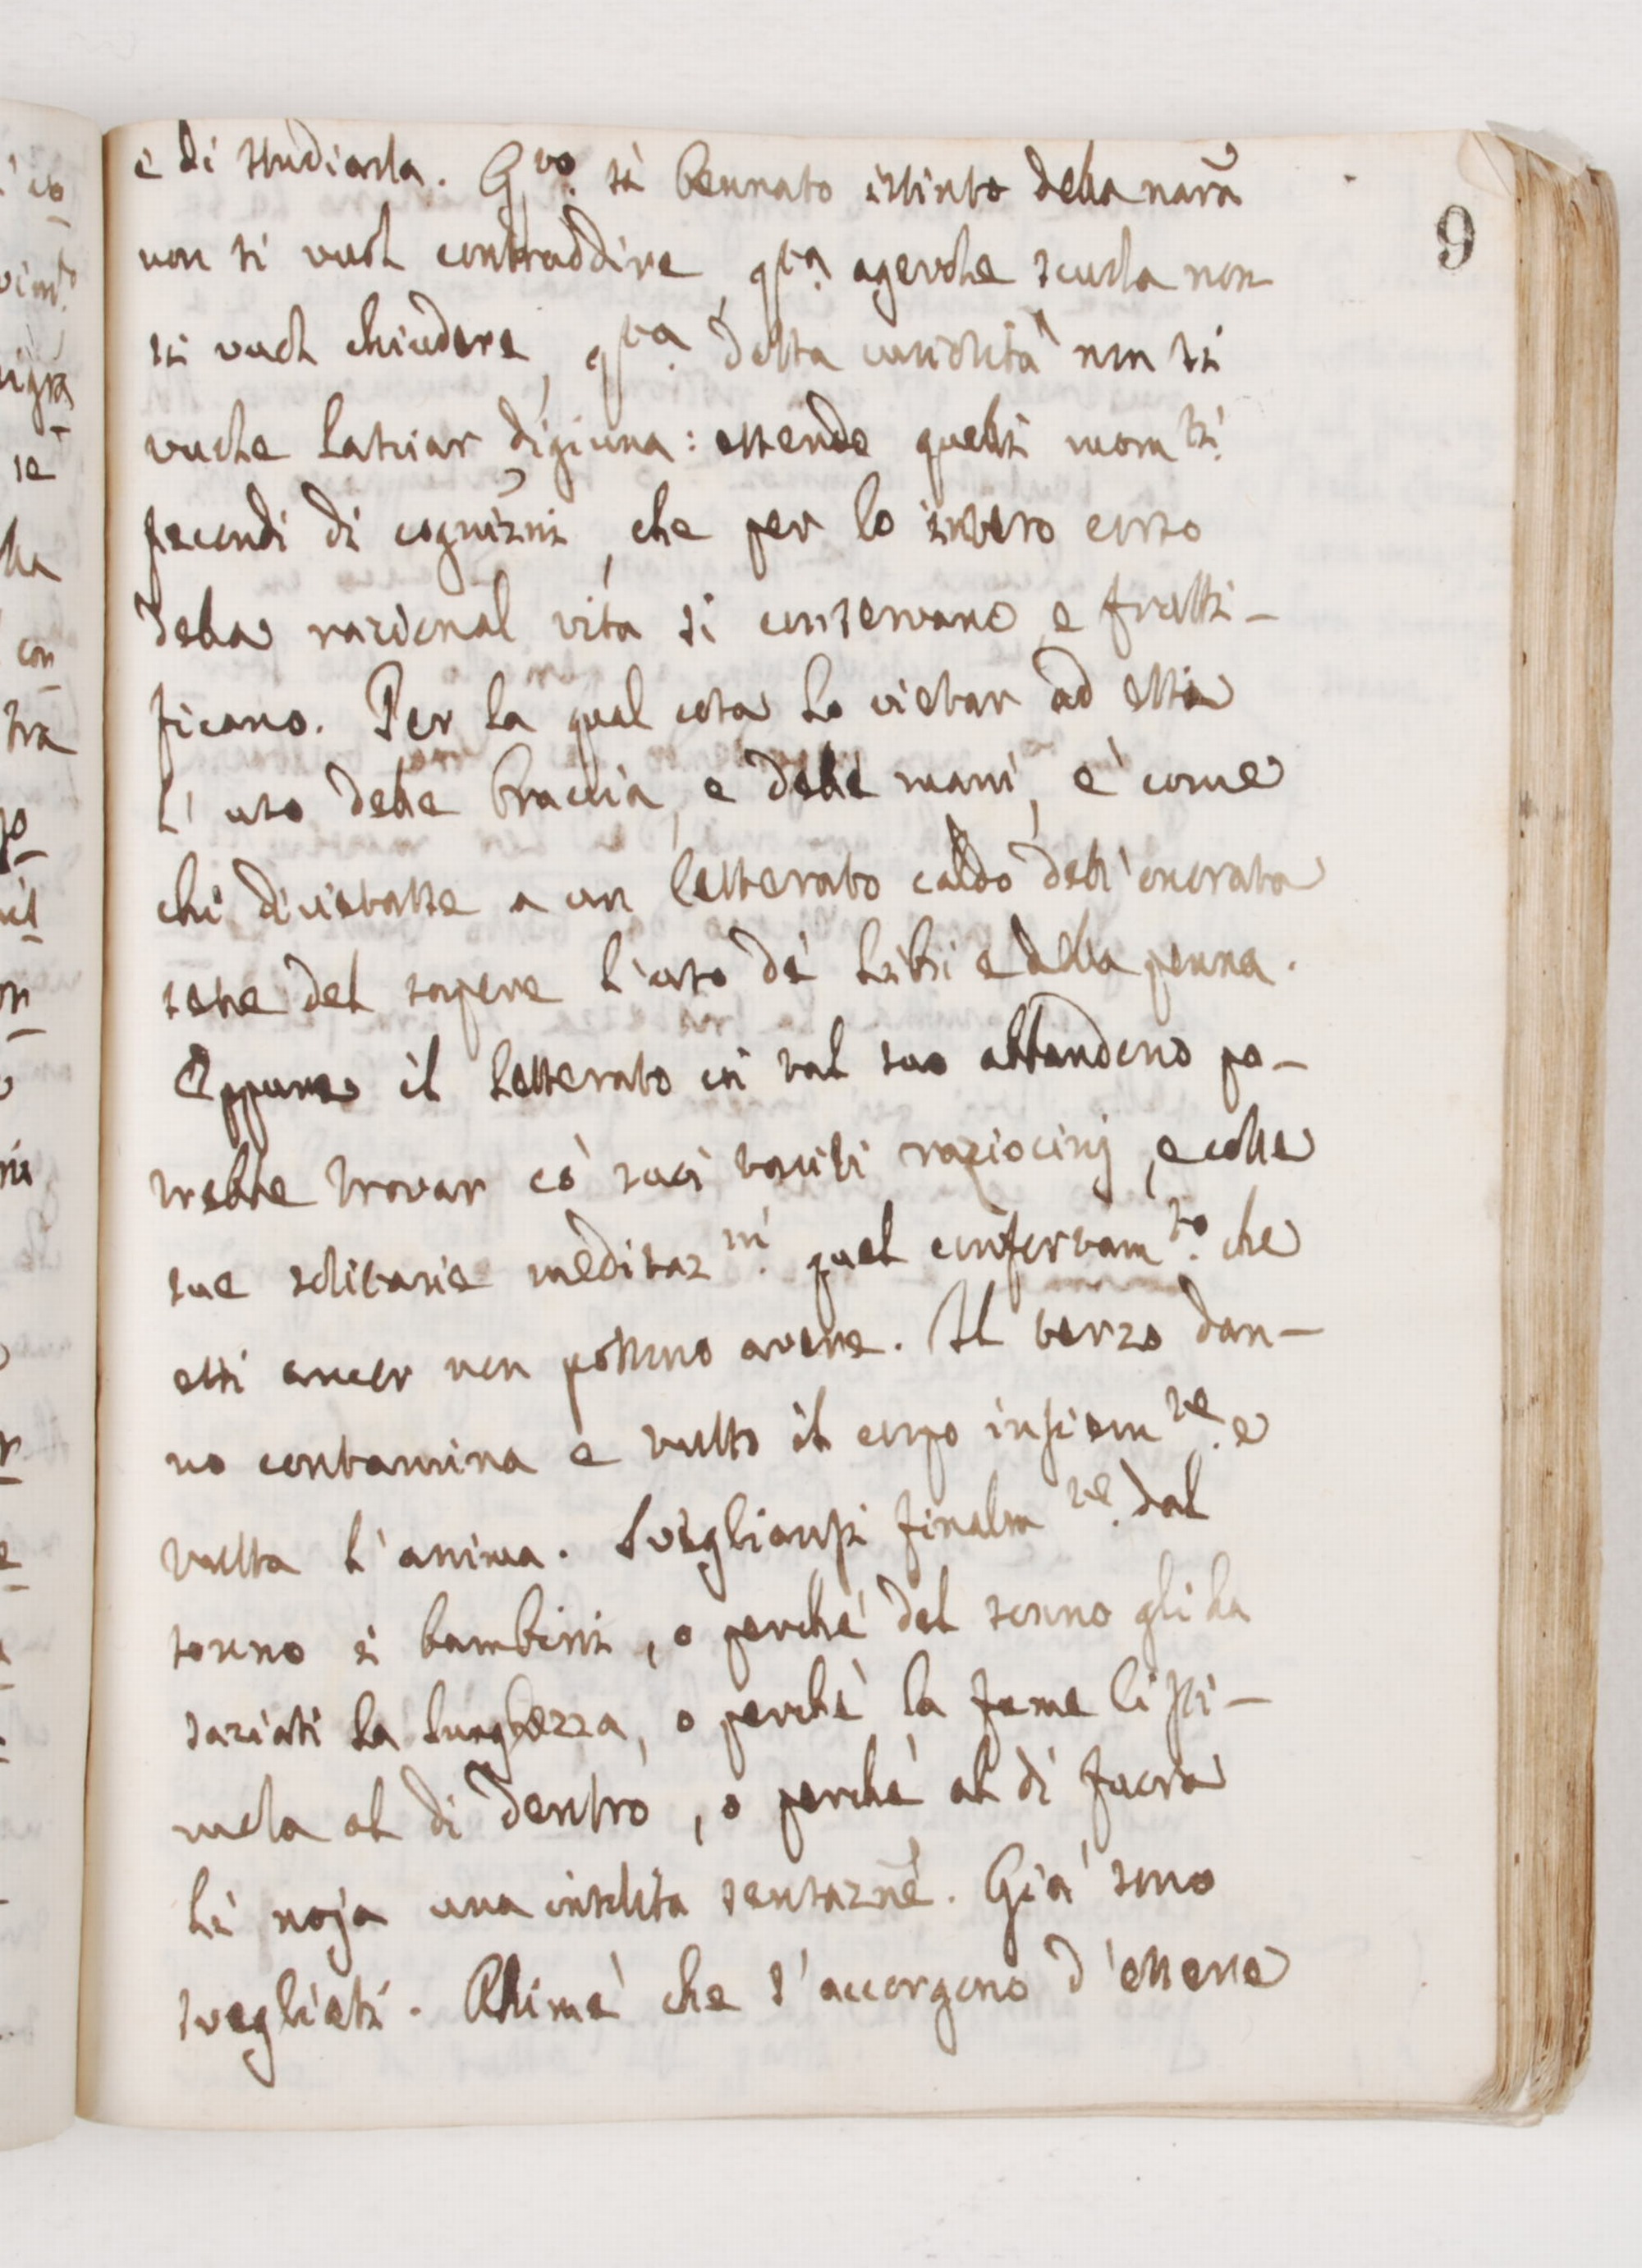 9
è di studiarla. Q.sto sì bennato istinto della nat̃a
non si vuol contraddire, q.sta agevole scuola non
si vuol chiudere, q.sta dotta curiosità non si
vuole lasciar digiuna: essendo quelli mom.ti
fecondi di cogniz̃ni, che per lo intero corso
della razional vita si conservano e frutti-
ficano. Per la qual cosa lo vietar ad essa
l'uso delle braccia, e delle mani, e' come
chi divietasse a un letterato caldo dell'onorata
sete del sapere l'uso de' libri e della penna.
Eppure il letterato in tal suo abbandono po-
trebbe trovar co' suoi taciti raziocinj, e colle
sue solitarie meditaz.ni quel confortam.to che
essi ancor non possono avere. Il terzo dan-
no contamina e tutto il corpo insiem.te e
tutta l'anima. Svegliansi finalm.te dal
sonno i bambini, o perché del sonno gli ha
saziati la lunghezza, o perchè la fame li sti-
mola al di dentro, o perché al di fuora
li noja una insolita sensaz̃ne. Già sono
svegliati. Ahimè che s'accorgono d'essere